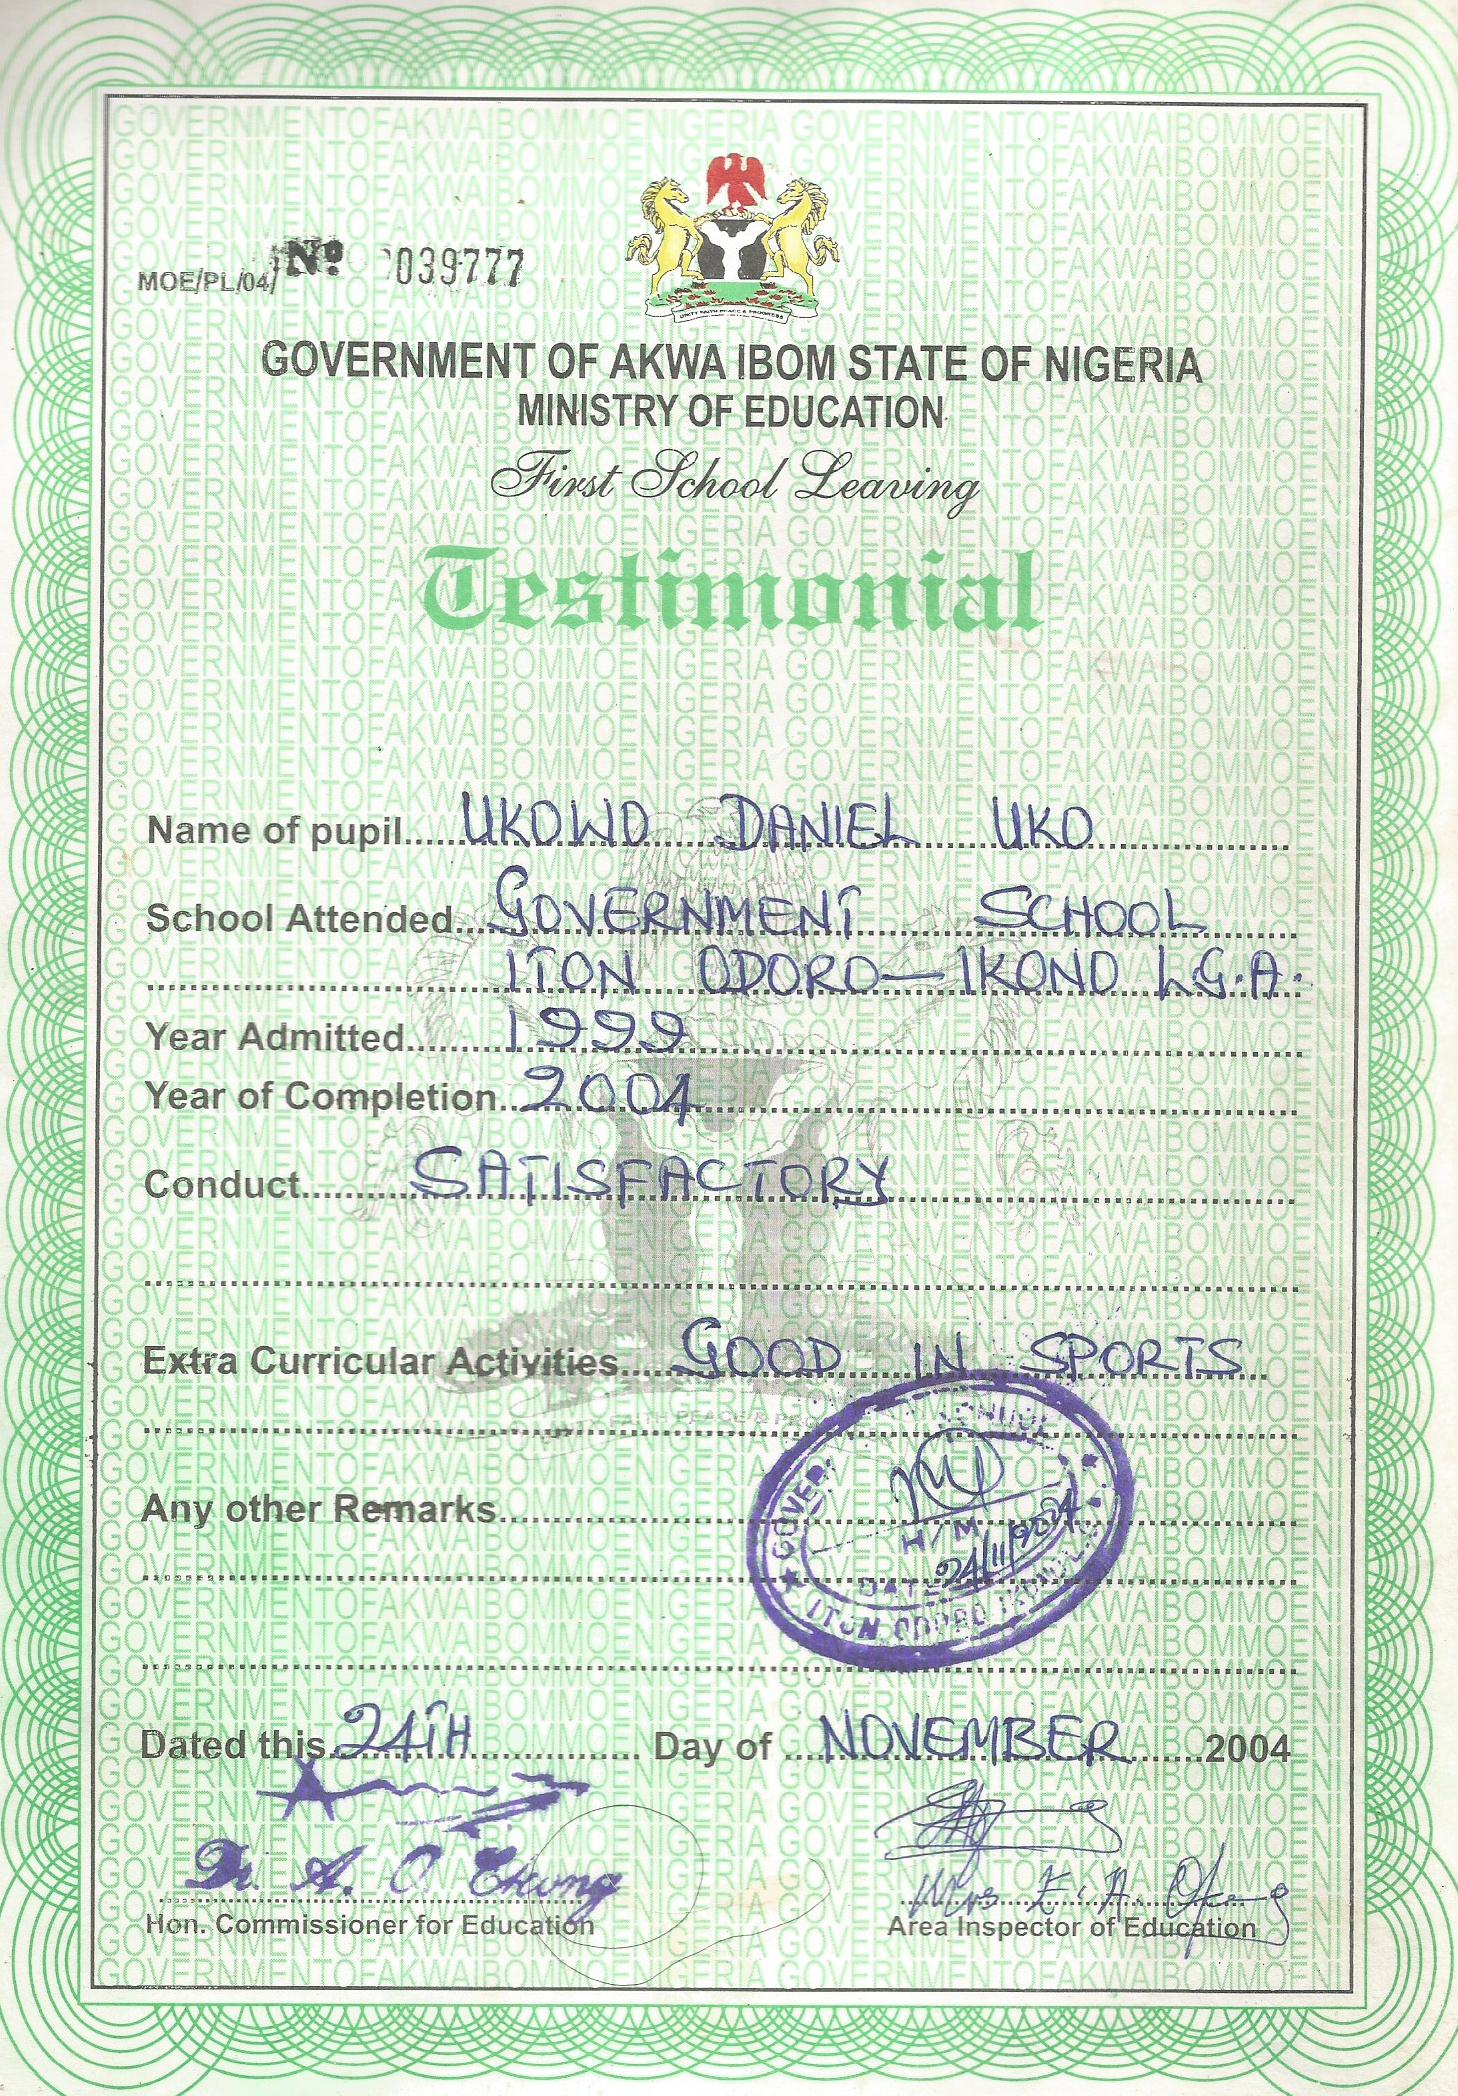 MOE/PL/04/ No 039777
UNITY FAITH PEACE & PROGRESS
GOVERNMENT OF AKWA IBOM STATE OF NIGERIA
MINISTRY OF EDUCATION
First School Leaving
Testimonial
Name of pupil.....UKOWO DANIEL UKO
School Attended...GOVERNMENT SCHOOL
ITON ODORO-IKONO L.G.A.
Year Admitted.....1999
Year of Completion..2004
Conduct.....SATISFACTORY
Extra Curricular Activities....GOOD IN SPORTS
Any other Remarks.....
SCHOOL
H/M
DATE 24/11/2004
ITON ODORO
Dated this 24TH Day of NOVEMBER 2004
Dr. A. O.
Mrs E. A.
Hon. Commissioner for Education Area Inspector of Education